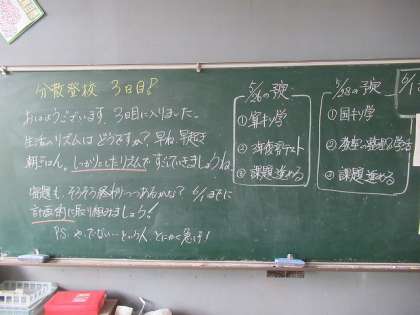 分散登校 3日目!
おはようございます。3日目に入りました。
生活のリズムはどうですか?早ね、早起き
朝ごはん。しっかりとしたリズムですごしていきましょうね
宿題も、そろそろ終わりつつあるかな? 6/1までに
計画的に取り組みましょう!
P.S. やってない…という人、とにかく急げ!
5/26の予定
①算キ学
②
③課題進める
5/28の予定
①国キ学
②
③課題進める
6/1